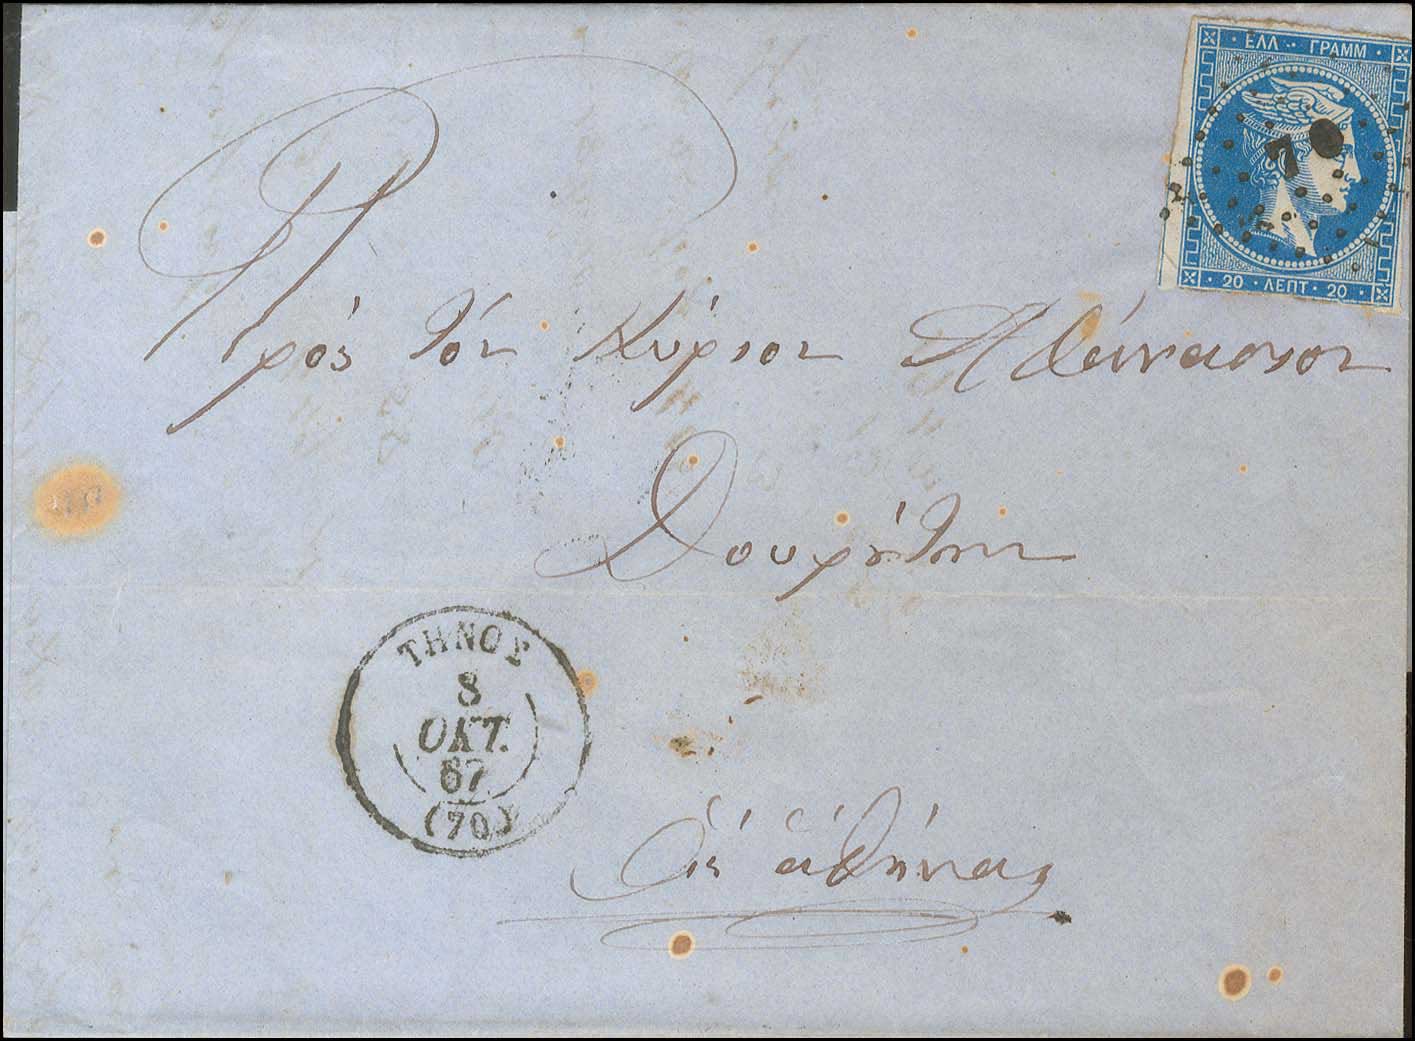 ΕΛΛ · · ΓΡΑΜΜ
70
20 · ΛΕΠΤ · 20
Πρός τόν Κύριον Αθάνασιον
Δουρήτην
ΤΗΝΟΣ
8
ΟΚΤ.
67
(70)
Εἰς ἀθήνας